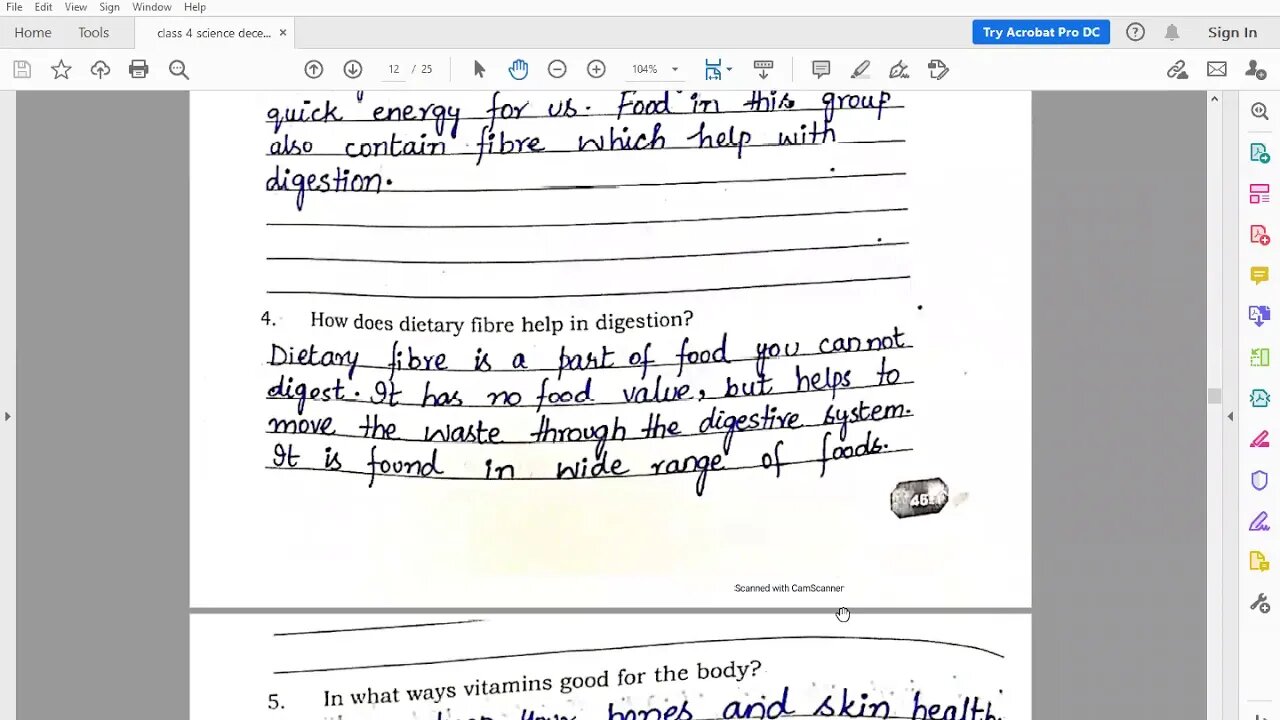 File Edit View Sign Window Help
Home Tools class 4 science dece... × Try Acrobat Pro DC Sign In
12 / 25 104%
quick energy for us. Food in this group
also contain fibre which help with
digestion.
4. How does dietary fibre help in digestion?
Dietary fibre is a part of food you cannot
digest. It has no food value, but helps to
move the waste through the digestive system.
It is found in wide range of foods.
Scanned with CamScanner
5. In what ways vitamins good for the body?
bones and skin health